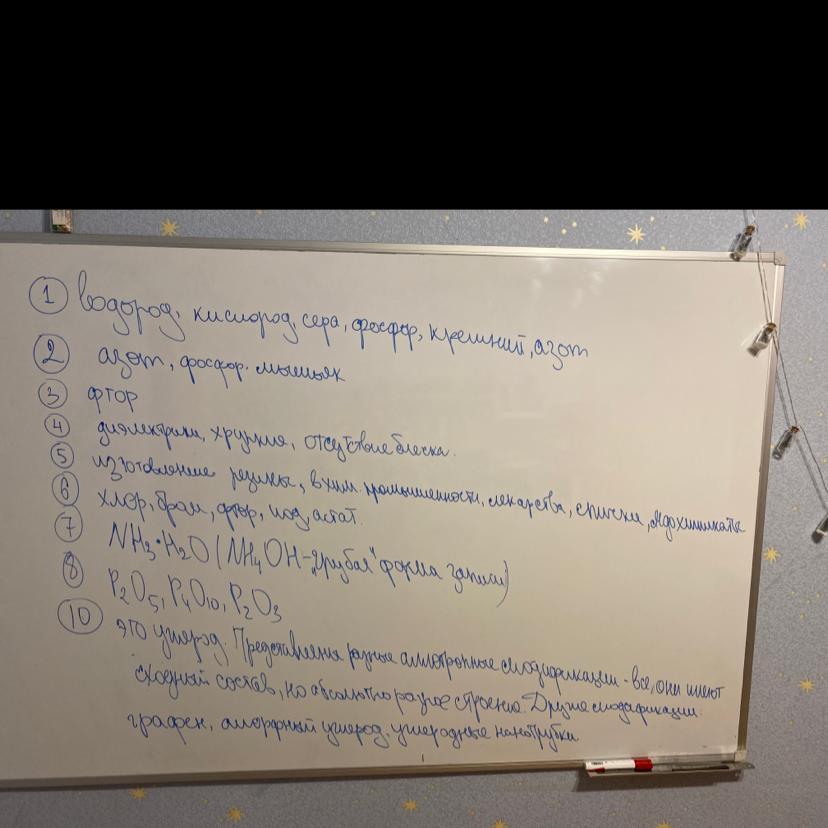 1 Водород, кислород, сера, фосфор, кремний, азот
2 азот, фосфор. мышьяк
3 фтор
4 диэлектрики, хрупкие, отсутствие блеска.
5 изготовление резины, в хим. промышленности, лекарства, спички, ядохимикаты
6 хлор, бром, фтор, иод, астат.
7 NH₃·H₂O (NH₄OH - „грубая" форма записи)
8 P₂O₅, P₄O₁₀, P₂O₃
10 это углерод. Представлены разные аллотропные модификации - все, они имеют
сходный состав, но абсолютно разное строение. Другие модификации:
графен, аморфный углерод, углеродные нанотрубки